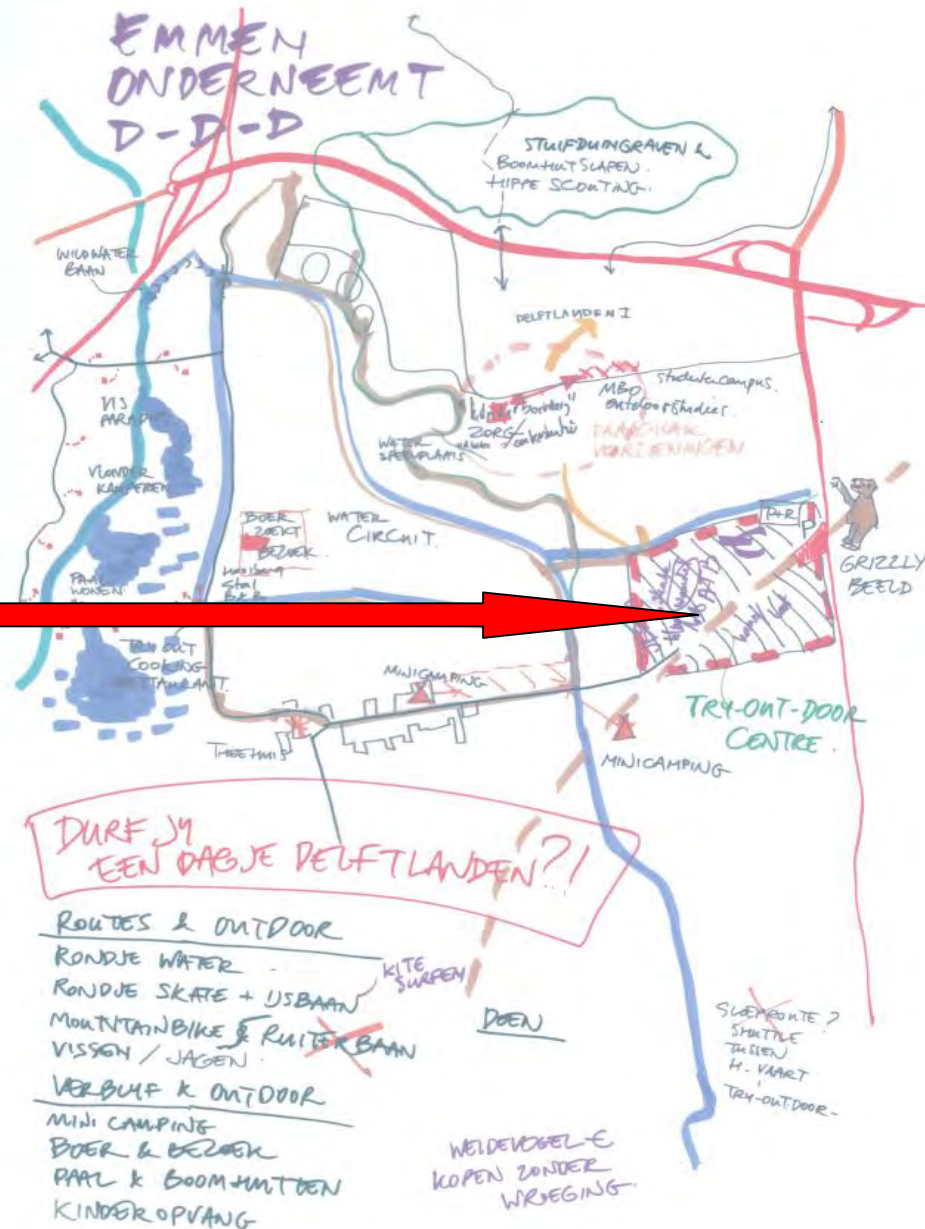 EMMEN
ONDERNEEMT
D-D-D
STUIFDUINGRAVEN &
BOOMHUTSLAPEN.
HIPPE SCOUTING.
WILDWATER
BAAN
DELFTLANDEN I
studentencampus.
MBO
outdoorstudies.
ZORG/
WATER
SPEELPLAATS
VIS
PARADIJS
VLONDER
KAMPEREN
BOER
ZOEKT
BEZOEK.
WATER
CIRCUIT.
Stal
B&B
PAAL
WONEN
P+R
P
GRIZZLY
BEELD
TRY OUT
COOKING
RESTAURANT.
MINICAMPING
THEEHUIS
TRY-OUT-DOOR
CENTRE.
MINICAMPING
DURF JY
EEN DAGJE DELFTLANDEN?!
ROUTES & OUTDOOR
RONDJE WATER
KITE
SURFEN
RONDJE SKATE + IJSBAAN
MOUNTAINBIKE & RUITERBAAN
VISSEN / JAGEN.
DOEN
VERBLYF & OUTDOOR
MINI CAMPING
BOER & BEZOEK
PAAL & BOOMHUTTEN
KINDEROPVANG
WEIDEVOGEL-€
KOPEN ZONDER
WROEGING.
SLOEPROUTE?
SHUTTLE
TUSSEN
H. VAART
TRY-OUTDOOR-